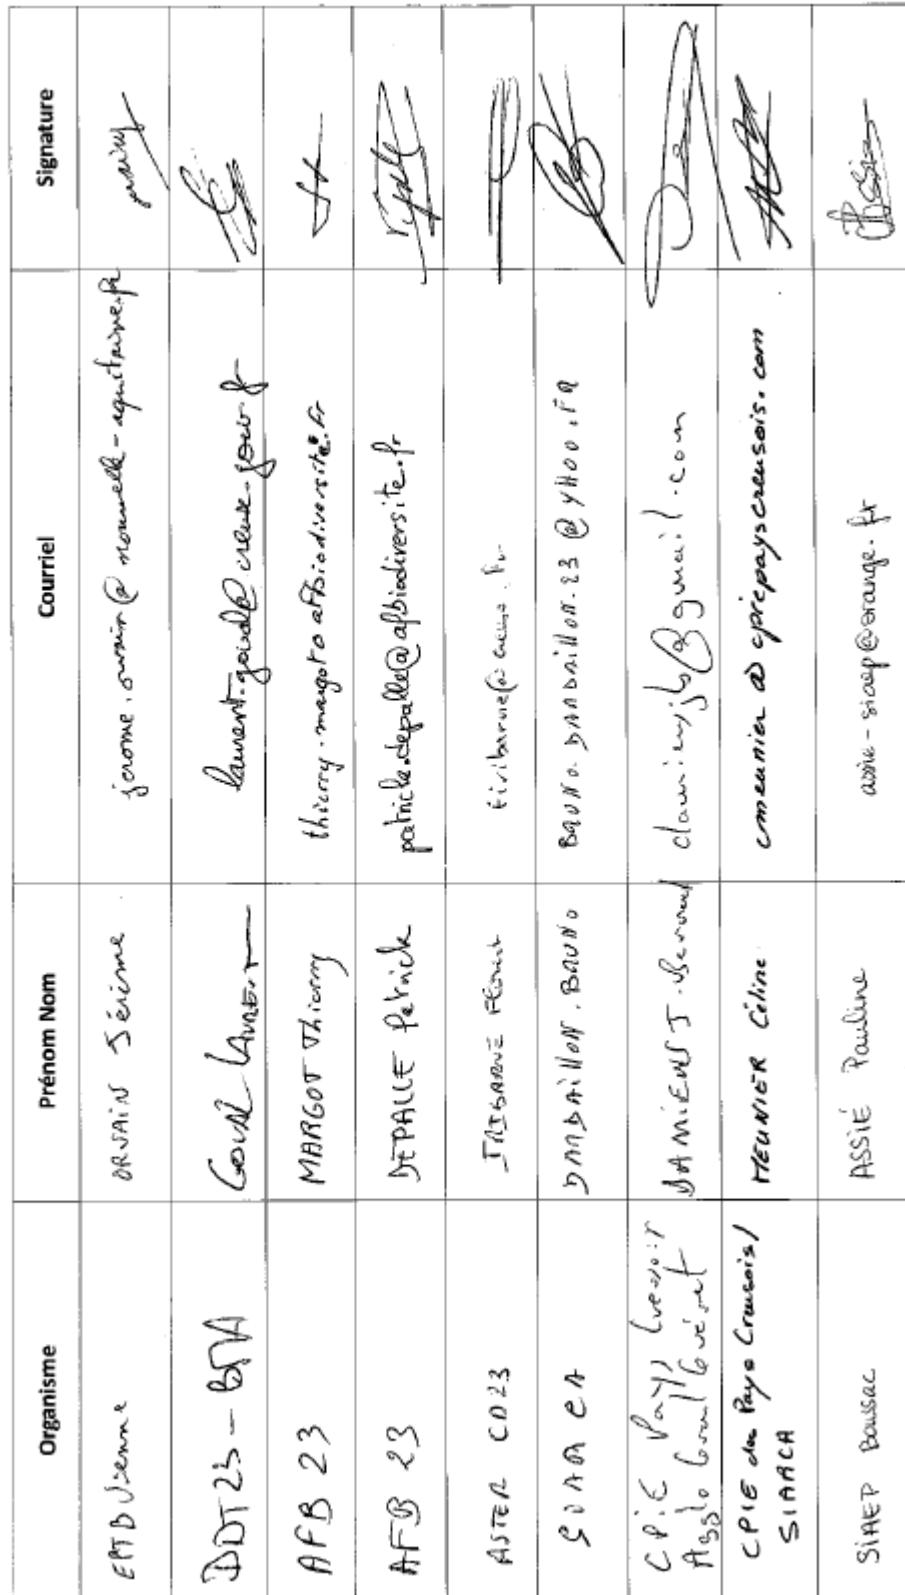 Organisme Prénom Nom Courriel Signature
EPTB Vienne ORSAIN Jérôme jerome.orsain@nouvelle-aquitaine.fr
DDT 23 - BMA GOUD LAURENT laurent.goud@creuse.gouv.fr
AFB 23 MARGOT Thierry thierry.margot@afbiodiversite.fr
AFB 23 DEPALLE Patrick patrick.depalle@afbiodiversite.fr
ASTER CD23 IRIBARNE Florent firibarne@creuse.fr
DARDAILLON. BRUNO BRUNO.DARDAILLON.23@YAHOO.FR
CPIE Pays Creusois
Agglo Grand Guéret DAMIENS J-Bernard damiensjb@gmail.com
CPIE des Pays Creusois/
SIARCA MEUNIER Céline cmeunier@cpiepayscreusois.com
SIAEP Boussac ASSIÉ Pauline assie-siaep@orange.fr